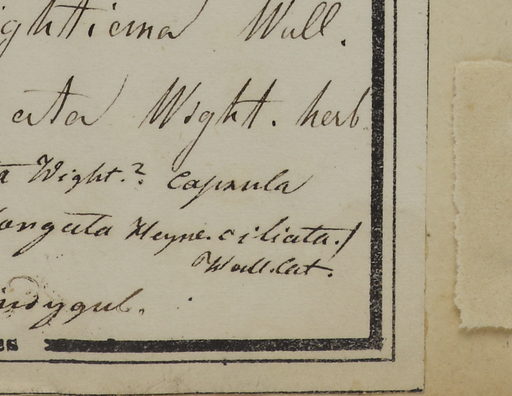 ghtiema Wall.
ata Wight. herb
a Wight.? Capsula
longata Heyne. ciliata.)
Wall. Cat.
indygul.
es